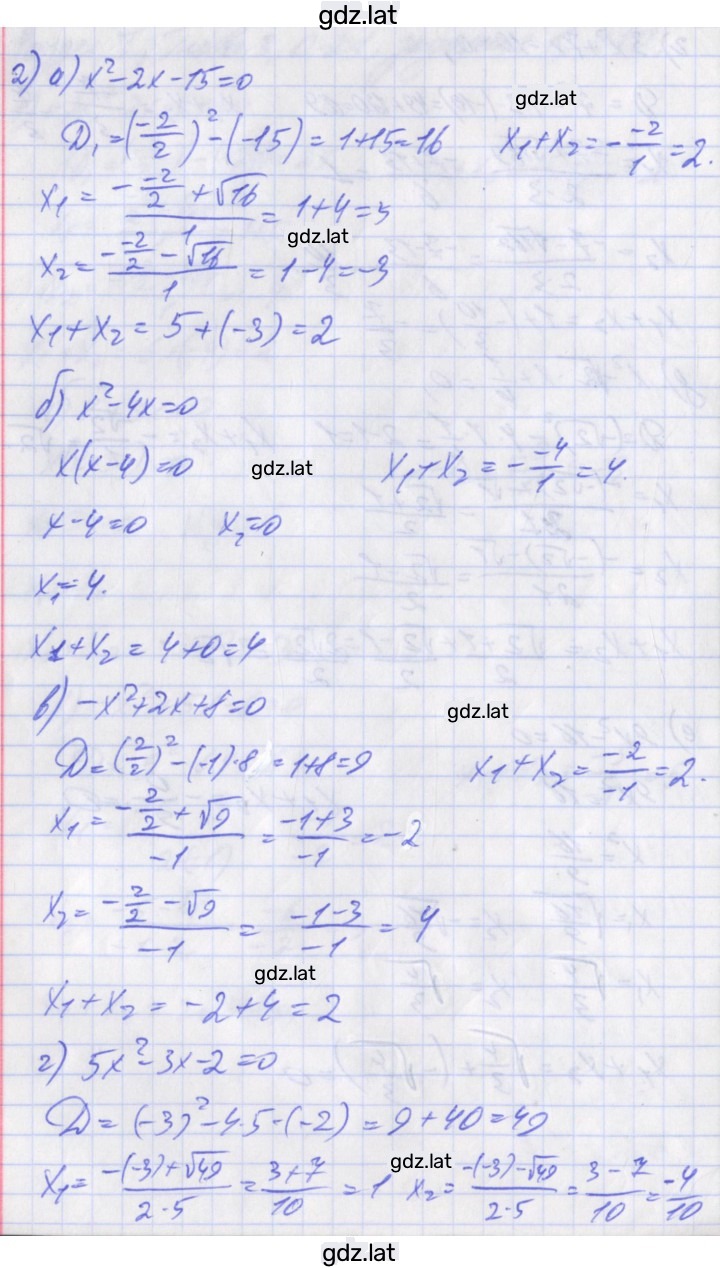 gdz.lat
2) а) x²-2x-15=0
gdz.lat
D₁=(-2/2)²-(-15)=1+15=16 x₁+x₂=-(-2/1)=2.
x₁=(-(-2/2)+√16)/1=1+4=5
gdz.lat
x₂=(-(-2/2)-√16)/1=1-4=-3
x₁+x₂=5+(-3)=2
б) x²-4x=0
x(x-4)=0 gdz.lat x₁+x₂=-(-4/1)=4.
x-4=0 x₂=0
x₁=4.
x₁+x₂=4+0=4
в) -x²+2x+8=0 gdz.lat
D=(2/2)²-(-1)·8=1+8=9 x₁+x₂=-2/-1=2.
x₁=(-2/2+√9)/-1=(-1+3)/-1=-2
x₂=(-2/2-√9)/-1=(-1-3)/-1=4
gdz.lat
x₁+x₂=-2+4=2
г) 5x²-3x-2=0
D=(-3)²-4·5·(-2)=9+40=49
gdz.lat
x₁=(-(-3)+√49)/(2·5)=(3+7)/10=1 x₂=(-(-3)-√49)/(2·5)=(3-7)/10=-4/10
gdz.lat